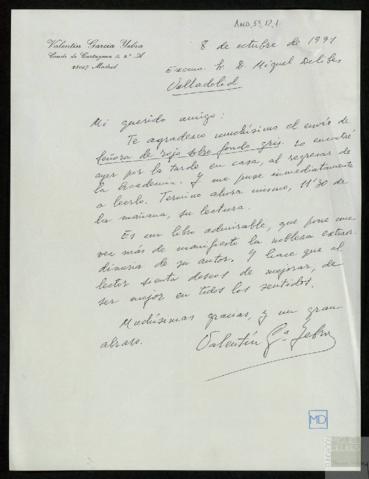 AMD, 59, 17, 1
Valentín García Yebra
Conde de Cartagena 5, 2º A
28007 Madrid
8 de octubre de 1991
Excmo. Sr. D. Miguel Delibes
Valladolid
Mi querido amigo:
Te agradezco muchísimo el envío de
Señora de rojo sobre fondo gris. Lo encontré
ayer por la tarde en casa, al regresar de
la Academia. Y me puse inmediatamente
a leerlo. Termino ahora mismo, 11'30 de
la mañana, su lectura.
Es un libro admirable, que pone una
vez más de manifiesto la nobleza extraor
dinaria de su autor. Y hace que el
lector sienta deseos de mejorar, de
ser mejor en todos los sentidos.
Muchísimas gracias, y un gran
abrazo.
Valentín Gª Yebra
MD